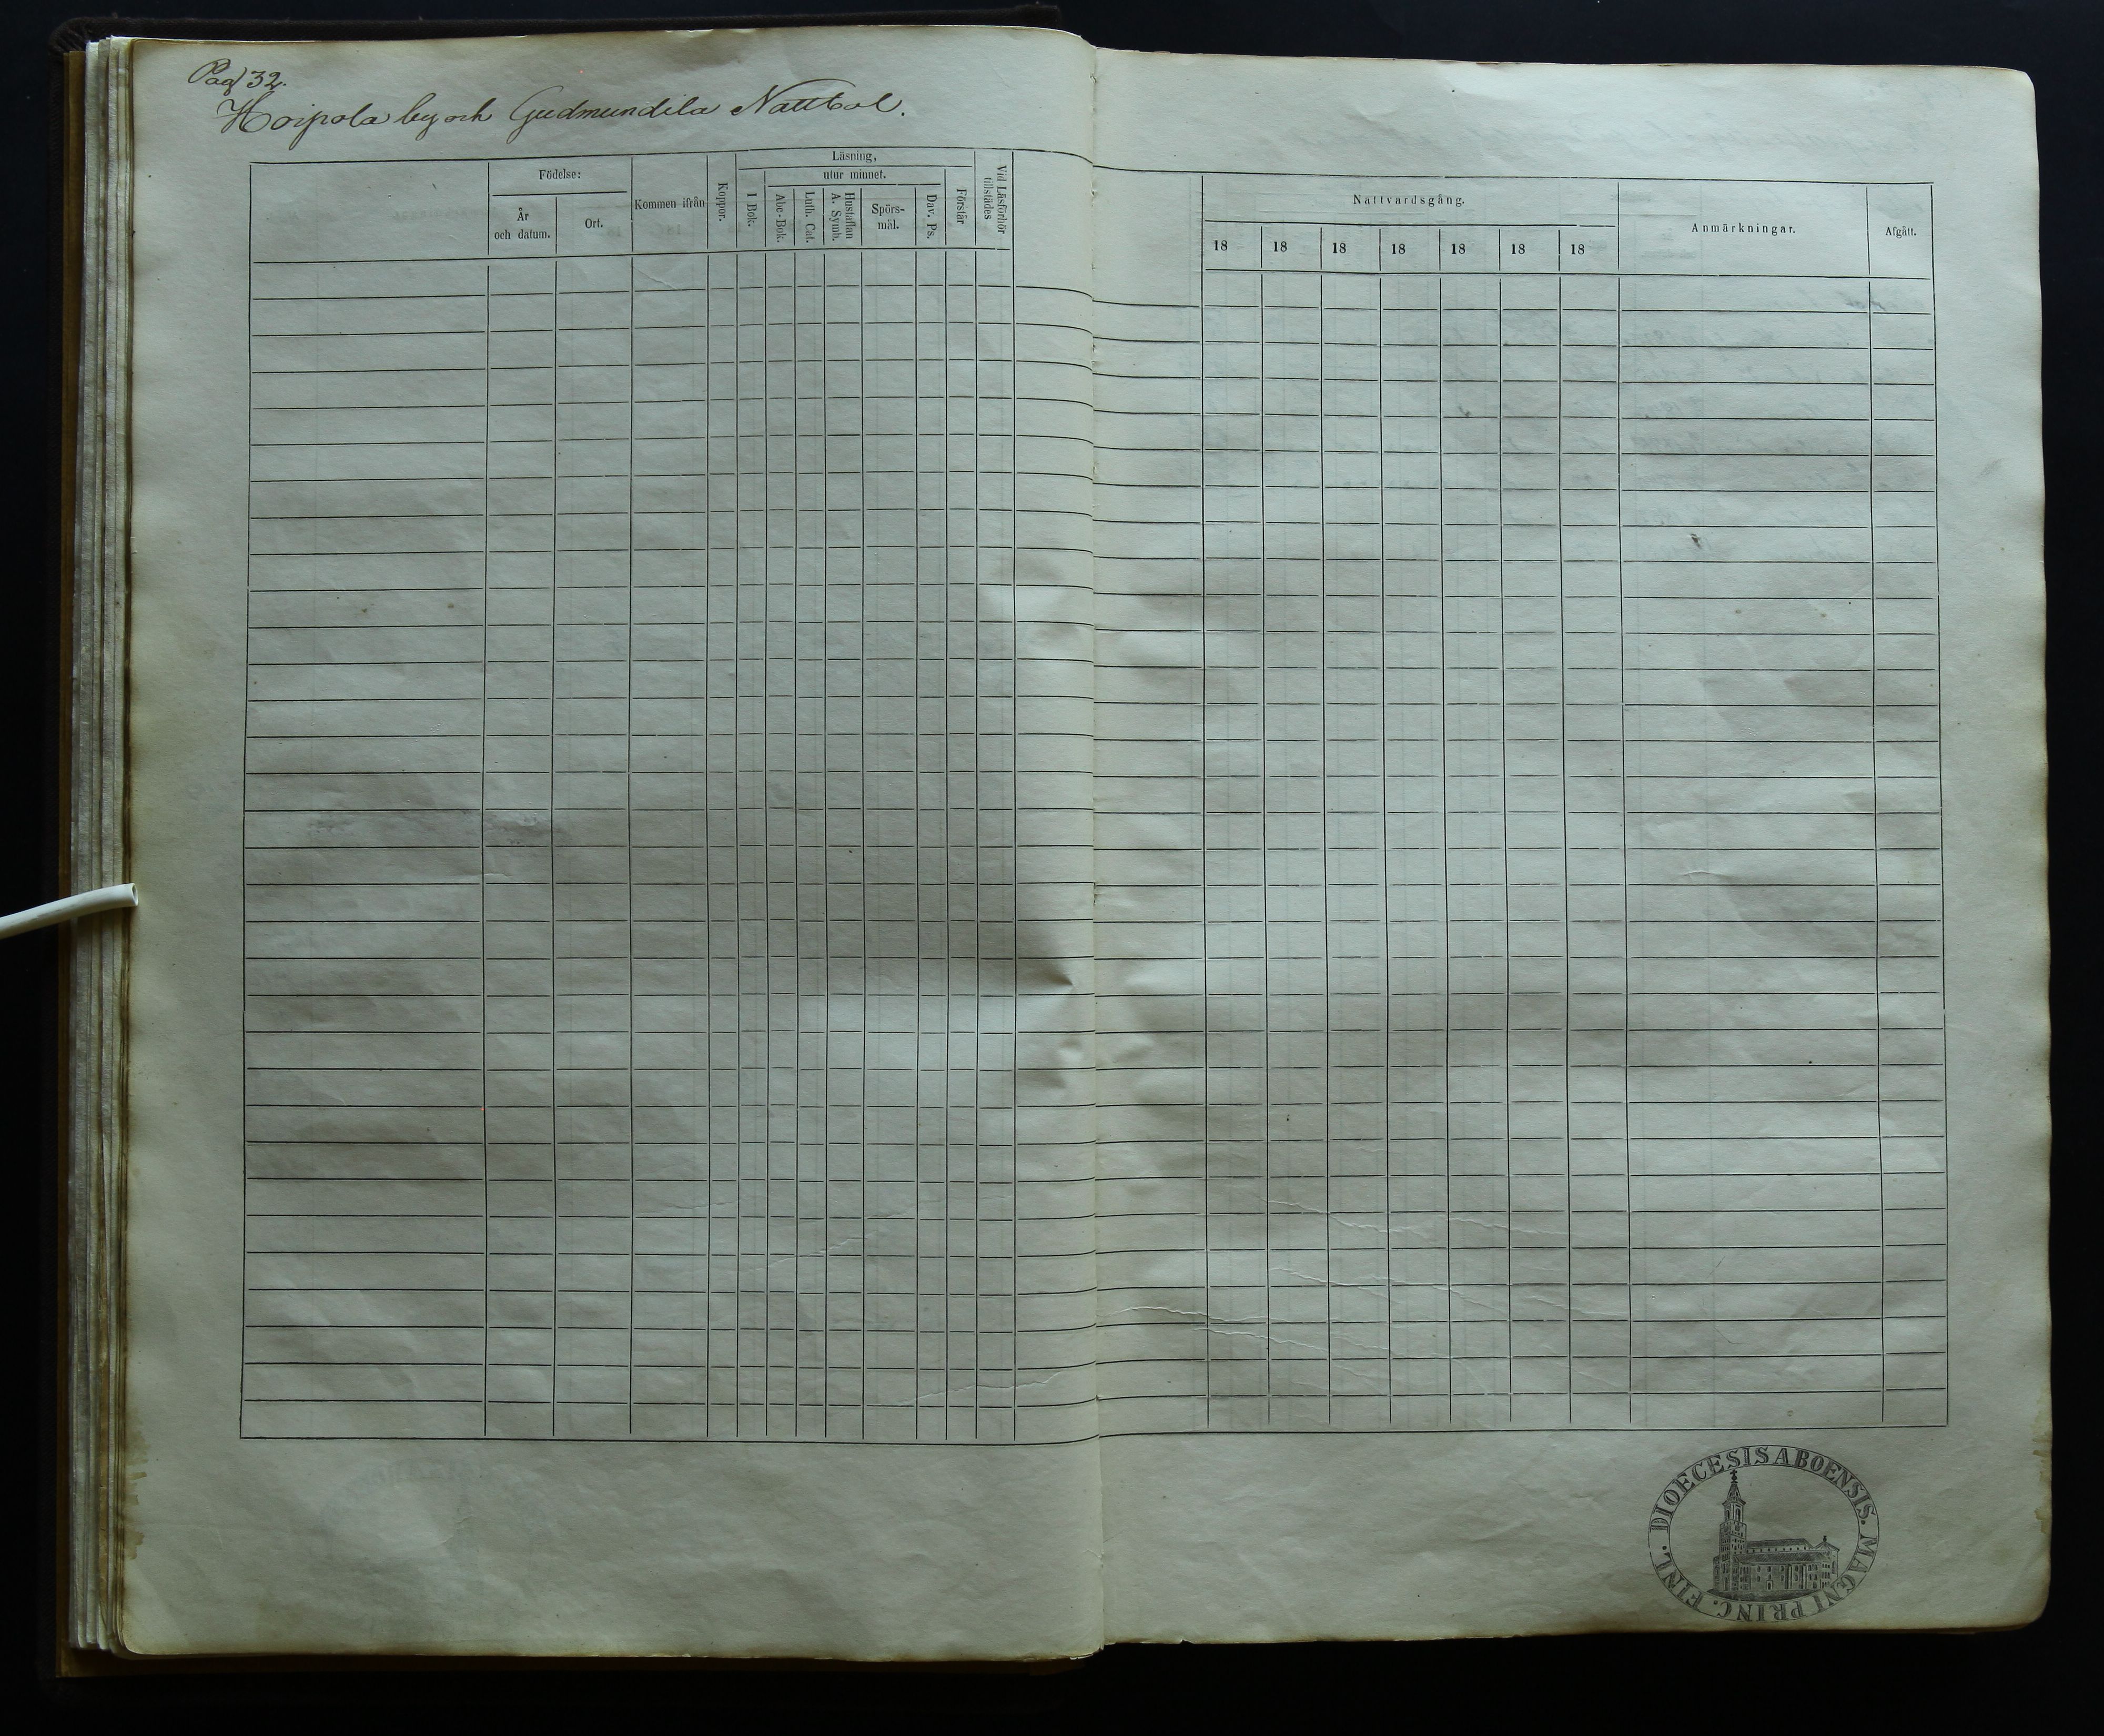 Pag 32.
Hoipola by och Gudmundila Nattbol.
Födelse:
År
och datum.
Ort.
Kommen ifrån
Koppor.
Läsning,
utur minnet.
I Bok.
Abc-Bok.
Luth. Cat.
Hustaflan
A. Symb.
Spörs-
mål.
Dav. Ps.
Förstår
Vid Läsförhör
tillstädes
Nattvardsgång.
18 18 18 18 18 18 18
Anmärkningar.
Afgått.
DIOECESIS ABOENSIS. MAGNI PRINC. FINL.